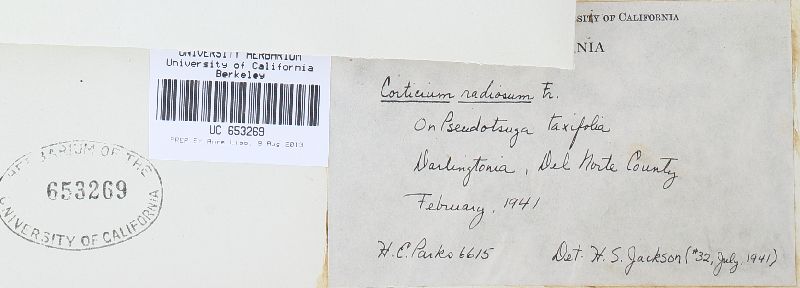 UNIVERSITY HERBARIUM
University of California
Berkeley
UC 653269
HERBARIUM OF THE
653269
UNIVERSITY OF CALIFORNIA
SITY OF CALIFORNIA
NIA
Corticium radiosum Fr.
On Pseudotsuga taxifolia
Darlingtonia, Del Norte County
February, 1941
H.E. Parks 6615
Det. H. S. Jackson (#32, July, 1941)